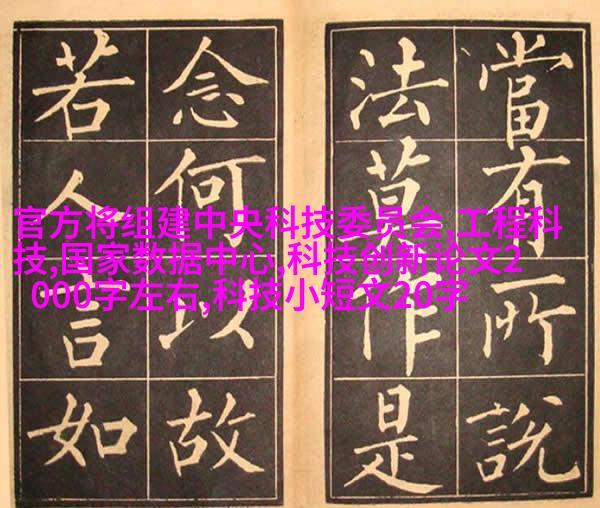 當有所說
法莫作是
念何以故
若人言如
官方将组建中央科技委员会,工程科
技,国家数据中心,科技创新论文2
000字左右,科技小短文20字